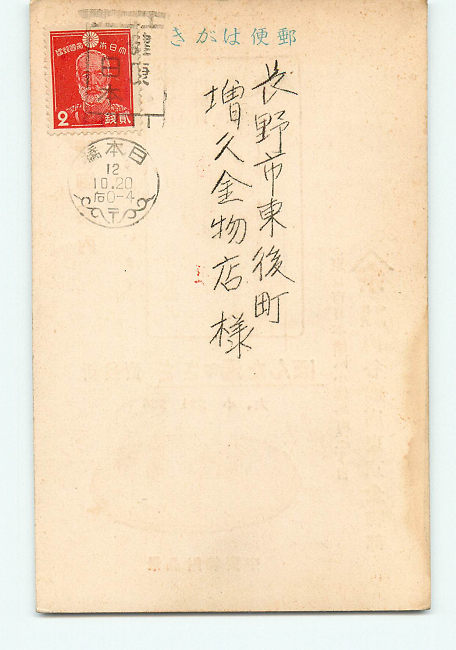 郵便はがき
大日本帝国郵便
2 銭 貳
健康
日本
日本橋
12
10.20
后0-4
〒
長野市東後町
増久金物店様